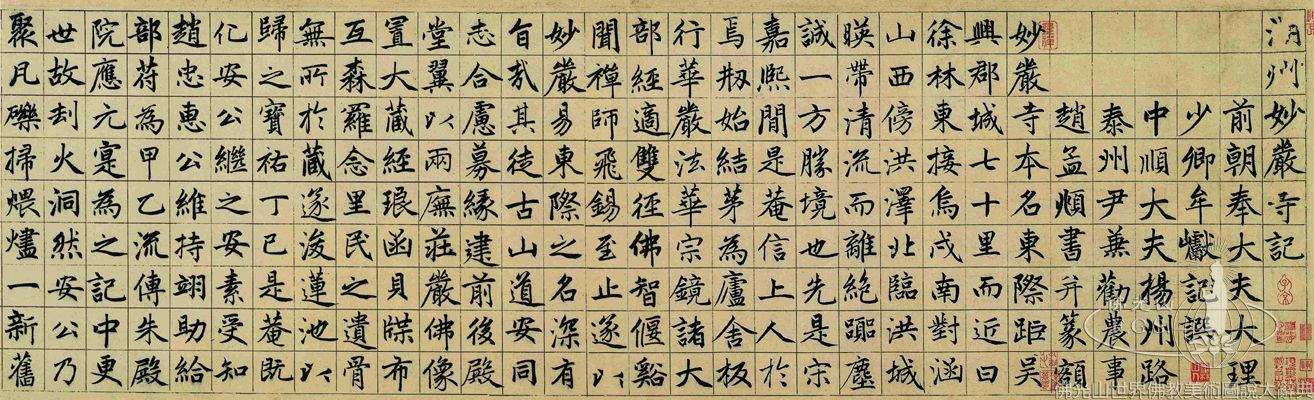 湖州妙嚴寺記
前朝奉大夫大理
少卿牟巘記譔
中順大夫楊州路
泰州尹兼勸農事
趙孟頫書并篆額
妙嚴寺本名東際距吳
興郡城七十里而近曰
徐林東接烏戍南對涵
山西傍洪澤北臨洪城
暎帶清流而離絕躢塵
誠一方勝境也先是宋
嘉熙間是菴信上人於
焉刱始結茅為廬舍板
行華嚴法華宗鏡諸大
部經適雙徑佛智偃谿
聞禪師飛錫至止遂以
妙嚴易東際之名深有
旨哉其徒古山道安同
志合慮募緣建前後殿
堂翼以兩廡莊嚴佛像
置大藏經琅函貝牒布
互森羅念里民之遺骨
無所於藏遂浚蓮池以
歸之寶祐丁巳是菴既
化安公繼之安素受知
趙忠惠公維持翊助給
部符為甲乙流傳朱殿
院應元寔為之記中更
世故刦火洞然安公乃
聚凡礫掃煨燼一新舊
佛光山世界佛教美術圖說大辭典